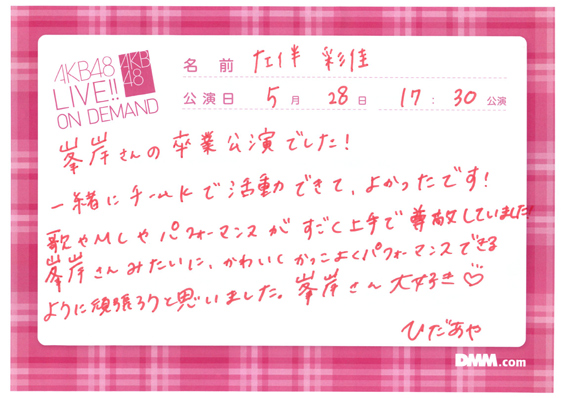 AKB48
LIVE!!
ON DEMAND
AKB
48
名前 左伴 彩佳
公演日 5月 28日 17:30 公演
峯岸さんの卒業公演でした!
一緒にチームKで活動できて、よかったです!
歌やMCやパフォーマンスがすごく上手で尊敬していました!
峯岸さんみたいに、かわいくかっこよくパフォーマンスできる
ように頑張ろうと思いました。峯岸さん大好き♡
ひだあや
DMM.com